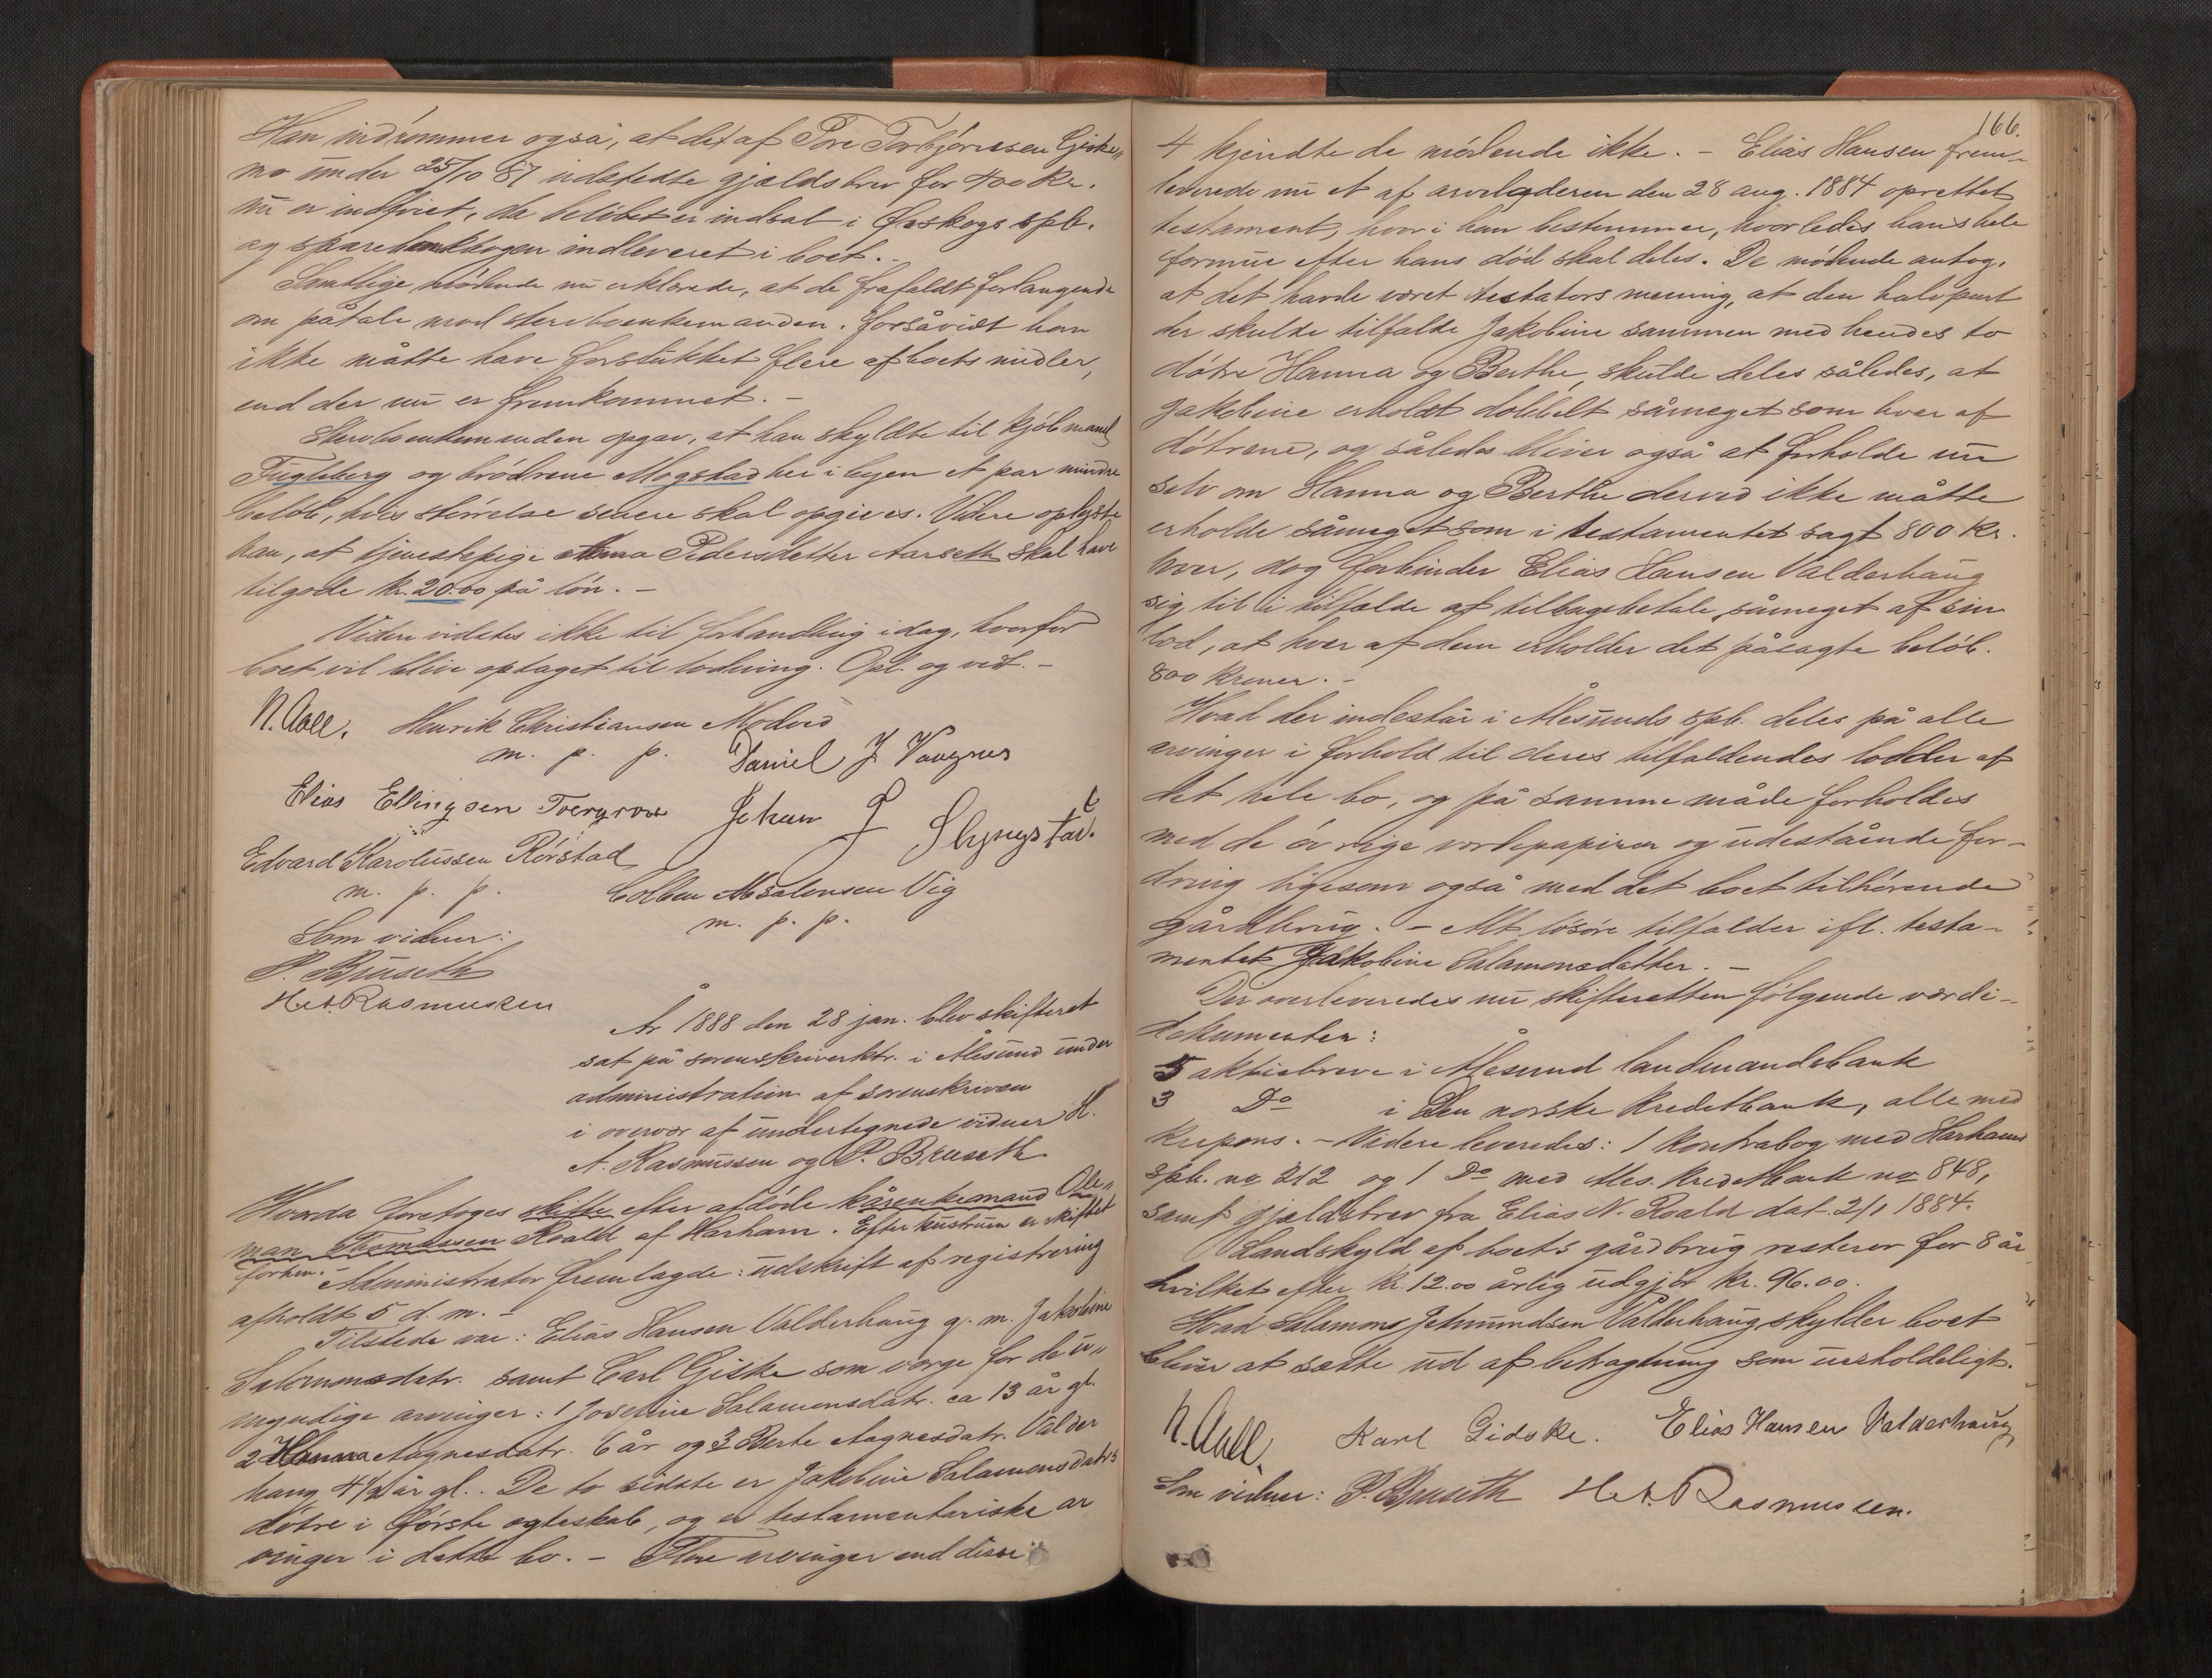 Han indrømmer også, at det af Tore Torbjørnsen Giske„
mo under 25/10 87 udstedte gjældsbrev for 400 Kr.
nu er indfriet, da beløbet er indsat i Ørskogs spb.
og sparebankbogen indleveret i boet. -
Samtlige mødende nu erklærede, at de frafaldt forlangende
om påtale mod stervboenkemanden, forsåvidt han
ikke måtte have forstukket flere af boets midler,
end der nu er fremkommet. -
Stervboenkemanden opgav, at han skyldte til kjøbmand
Fugleberg og brødrene Mogstad her i byen et par mindre
beløb, hvis størrelse senere skal opgives. Videre oplyste
han, at tjenestepige Anna Pedersdatter Aarseth skal have
tilgode kr. 20.00 på løn. -
Videre vidstes ikke til forhandling idag, hvorfor
boet vil blive optaget til lodning. Opl. og vedt. -
N. Aall. Henrik Christiansen Modved
m. p. p. Daniel J Vaagnes
Elias Ellingsen Johan J Slyngstad.
Edvard Karolussen Rørstad
m. p. p. Colben Absalonsen Vig
m. p. p.
Som vidner:
P. Bruseth
H. A. Rasmussen
År 1888 den 28 jan. blev skifteret
sat på sorenskriverktr. i Ålesund under
administration af sorenskriveren
i overvær af undertegnede vidner H.
A. Rasmussen og P. Bruseth.
Hvorda foretoges skifte efter afdøde kårenkemand Ole„
man Thomassen Roald af Harham. Efter kustruen er skiftet
forhen. - Administrator fremlagde: udskrift af registrering
afholdt 5 d. m. -
Tilstede var: Elias Hansen Valderhaug g. m. Jakobine
Salomonsdatr. samt Carl Giske som værge for de u„
myndige arvinger: 1 Josefine Salamonsdatr. ca 13 år gl.
2 Hanna Aagnesdatr. 6 år og 3 Berte Aagnesdatr. Valder
haug 4½ år gl.. De to sidste er Jakobine Salamonsdatr's
døtre i første ægteskab, og er testamentariske ar
vinger i dette bo. - Flere arvinger end disse
166.
4 kjendte de mødende ikke. - Elias Hansen frem-
leverede nu et af arveladeren den 28 aug. 1884 oprettet
testament, hvori han bestemmer, hvorledes hans hele
formue efter hans død skal deles. De mødende antog,
at det havde været testators mening, at den halvpart
der skulde tilfalde Jakobine sammen med hendes to
døtre Hanna og Berthe, skulde deles således, at
Jakobine erholdt dobbelt såmeget som hver af
døtrene, og således bliver også at forholde nu
selv om Hanna og Berthe derved ikke måtte
erholde såmeget som i testamentet sagt 800 Kr.
hver, dog forbinder Elias Hansen Valderhaug
sig til i tilfælde at tilbagebetale såmeget af sin
lod, at hver af dem erholder det påsagte beløb.
800 kroner. -
Hvad der indestår i Ålesunds spb. deles på alle
arvinger i forhold til deres tilfaldendes lodder af
det hele bo, og på samme måde forholdes
med de øvrige verdipapirer og udestående for-
dring ligesom også med det boet tilhørende
gårdbrug. - Alt løsøre tilfalder ifl. testa-
mentet Jakobine Salamonsdatter. -
Der overleveredes nu skifteretten følgende værdi-
dokumenter:
5 aktiebreve i Ålesund landmandsbank
3 Do i Den norske kreditbank, alle med
kupons. - Videre leveredes: 1 kontrabog med Harhams
spb. no 212 og 1 Do med Ales. kreditbank no 848,
samt gjældsbrev fra Elias N. Roald dat. 2/1 1884.
Landskyld af boets gårdbrug resterer for 8 år
hvilket efter kr. 12.00 årlig udgjør kr. 96.00.
Hvad Salamons Johnundsen Valderhaug skylder boet
bliver at sætte ud af betragtning som uerholdeligt.
N. Aall. Karl Gidske. Elias Hansen Valderhaug
Som vidner: P. Bruseth H. A. Rasmussen.